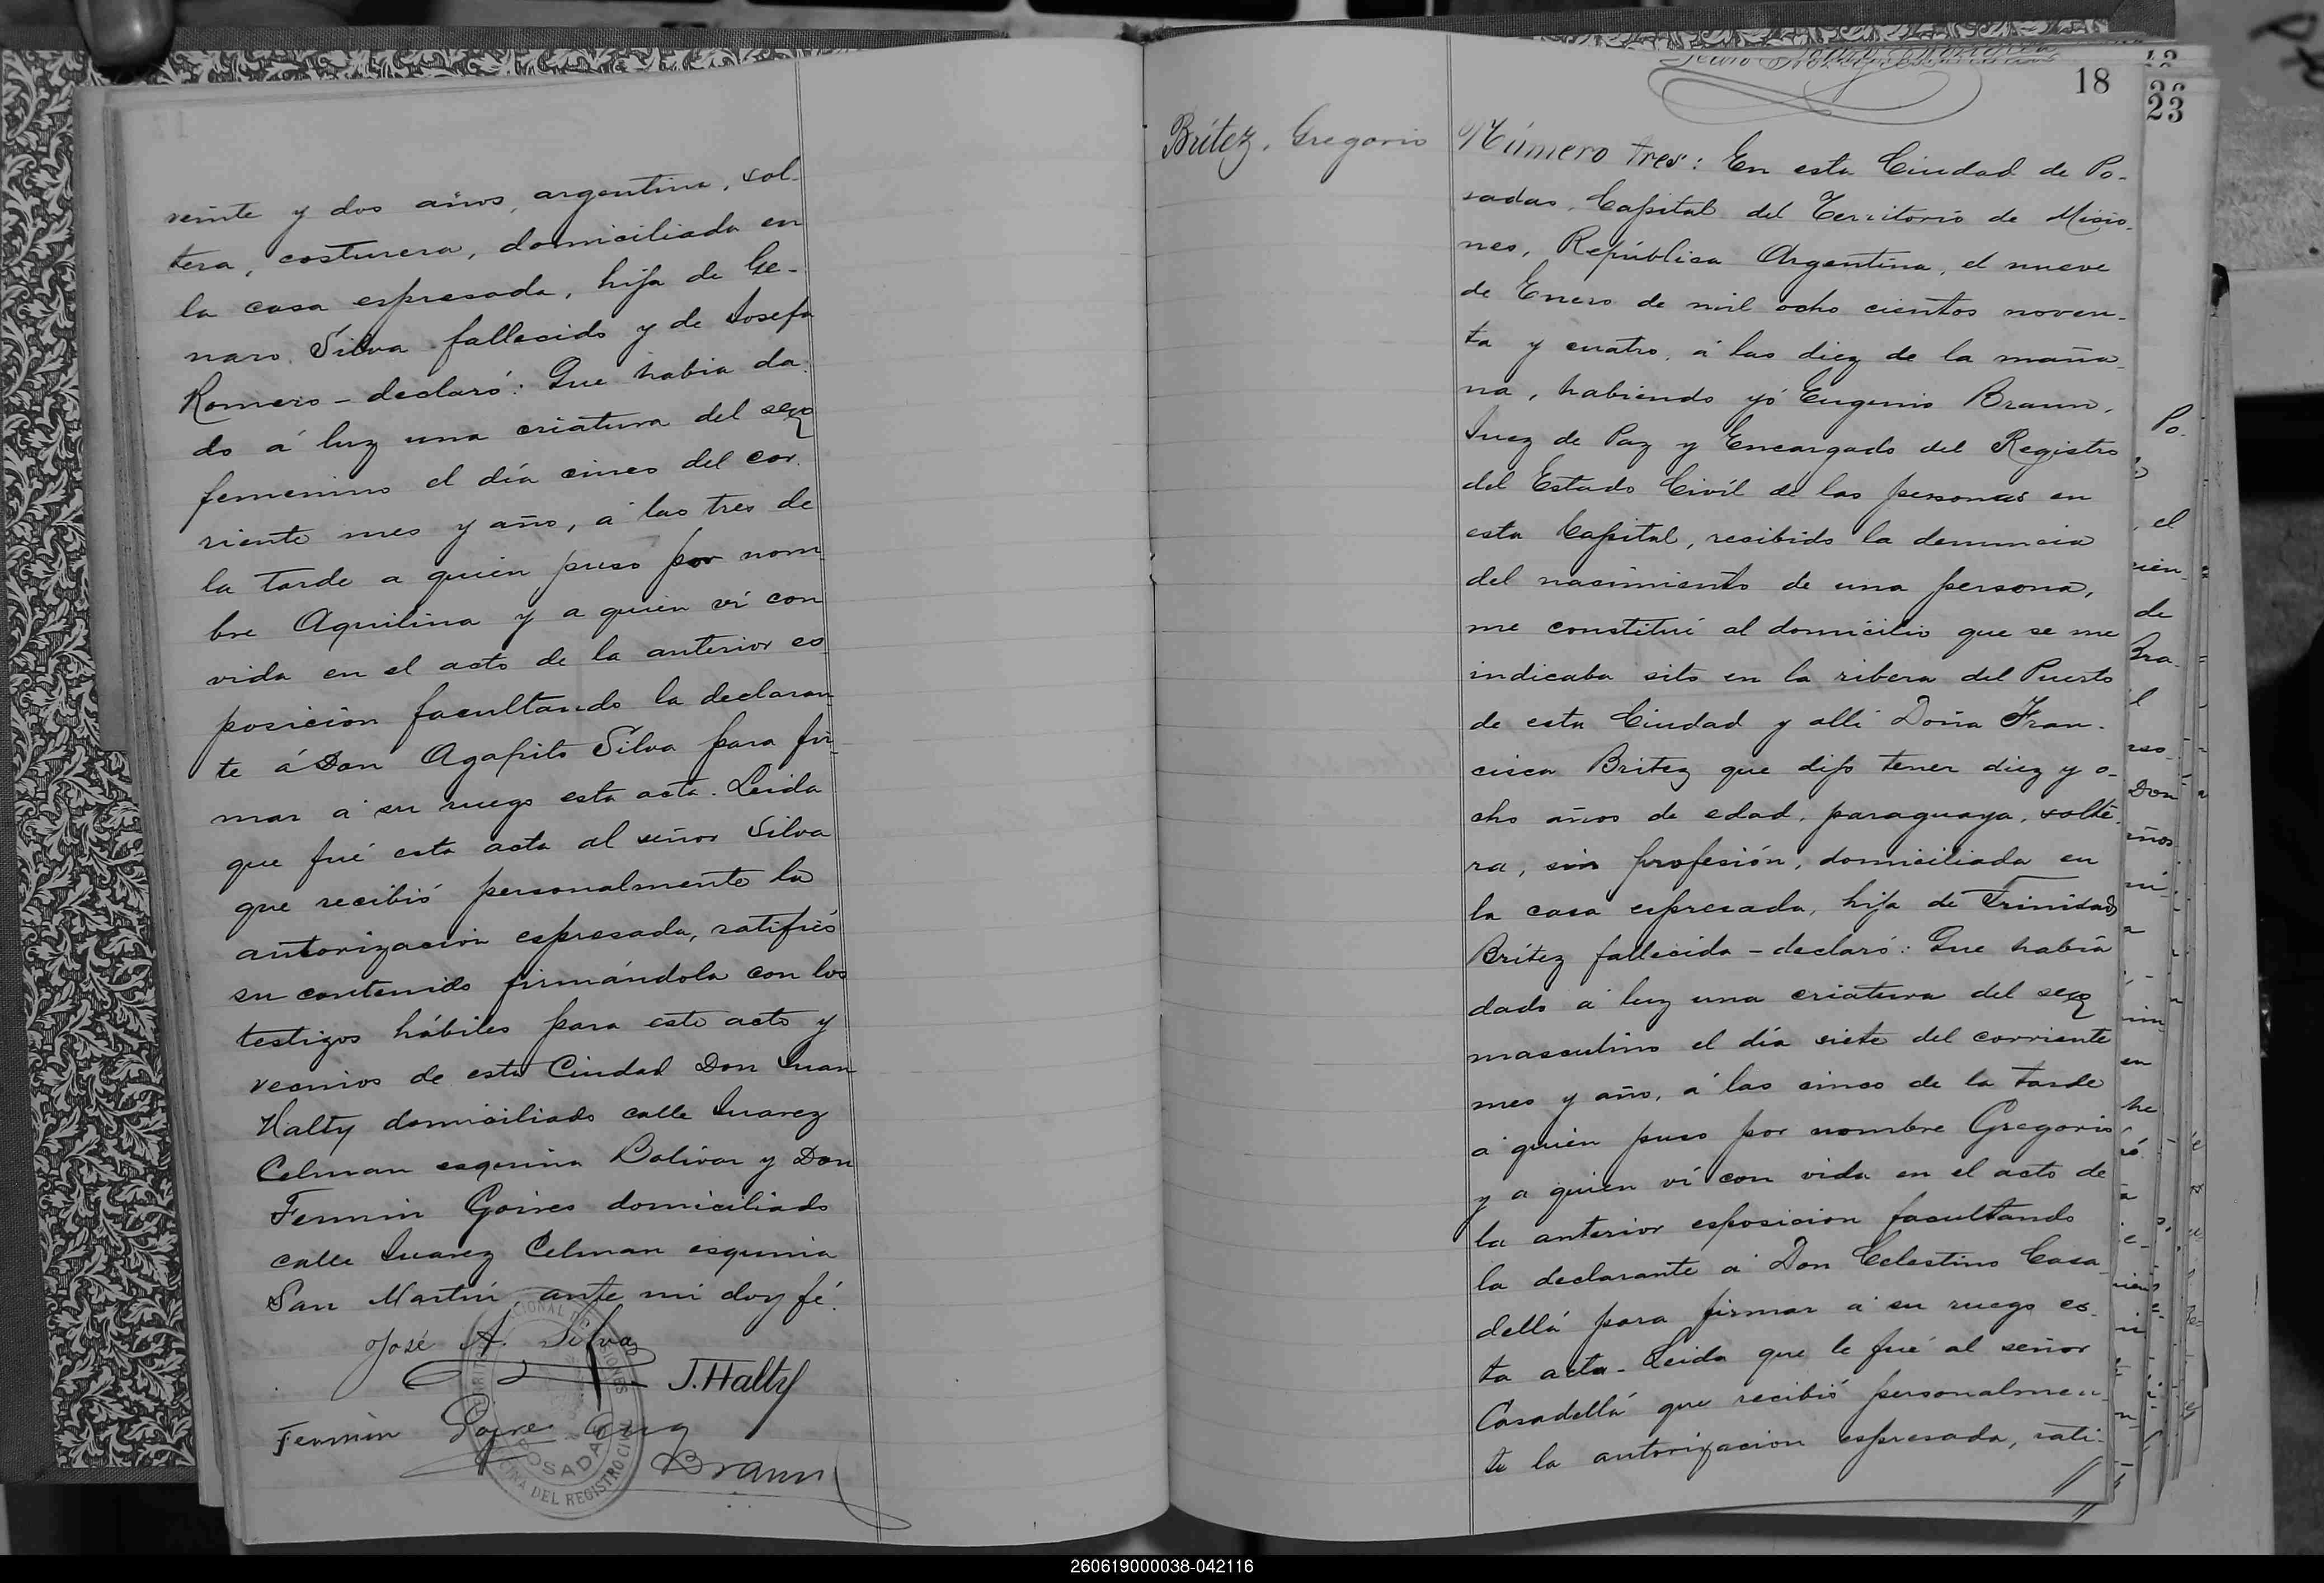 veinte y dos años, argentina, sol-
tera, costurera, domiciliada en
la casa espresada, hija de Ge-
naro Silva fallecido y de Josefa
Romero - declaró: Que habia da-
do á luz una criatura del sexo
femenino el día cinco del cor-
riente mes y año, á las tres de
la tarde a quien puso por nom-
bre Aquilina y a quien ví con
vida en el acto de la anterior es
posicion facultando la declaran
te á Don Agapito Silva para fir-
mar á su ruego esta acta. Leida
que fué esta acta al señor Silva
que recibió personalmente la
autorizacion espresada, ratificó
su contenido firmándola con los
testigos hábiles para este acto y
vecinos de esta Ciudad Don Juan
Halty domiciliado calle Juarez
Celman esquina Bolivar y Don
Fermin Goires domiciliado
calle Juarez Celman esquina
San Martin, ante mi doy fé.
José A. Silva
J. Halty
Fermin
Braun
POSADAS
DEL REGISTRO CIVIL
18
23
Britez, Gregorio
Número tres: En esta Ciudad de Po-
sadas, Capital del Territorio de Misio-
nes, República Argentina, el nueve
de Enero de mil ocho cientos noven-
ta y cuatro, á las diez de la maña-
na, habiendo yó Eugenio Braun,
Juez de Paz y Encargado del Registro
del Estado Civíl de las personas en
esta Capital, recibido la denuncia
del nacimiento de una persona,
me constituí al domicilio que se me
indicaba sito en la ribera del Puerto
de esta Ciudad y alli Doña Fran-
cisca Britez que dijo tener diez y o-
cho años de edad, paraguaya, solte-
ra, sin profesión, domiciliada en
la casa espresada, hija de Trinidad
Britez fallecida - declaró: Que había
dado á luz una criatura del sexo
masculino el día siete del corriente
mes y año, á las cinco de la tarde
á quien puso por nombre Gregorio
y a quien ví con vida en el acto de
la anterior esposicion facultando
la declarante á Don Celestino Casa-
dellá para firmar á su ruego es-
ta acta - Leida que le fué al señor
Casadellá que recibió personalmen-
te la autorizacion espresada, rati-
260619000038-042116